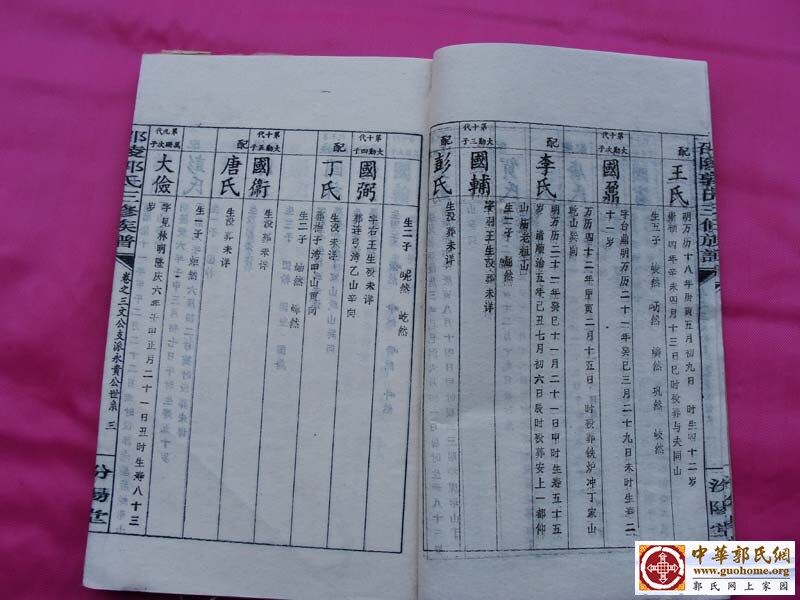 配
王氏
明万历十八年庚寅五月初九日 时生四十二岁
崇祯四年辛未四月十三日巳时殁葬与夫同山
生五子 然 然 然 巩然 岐然
第十代
大勳次子
國鼐
字台鼎明万历二十一年癸巳三月二十九日未时生寿二十一岁
万历四十二年甲寅二月十五日 时殁葬铁炉冲丁家山
乾山巽向
配
李氏
明万历二十一年癸巳十一月二十一日申时生寿五十五
岁 清顺治五年己丑七月初六日辰时殁葬安上一都仰
山庙老祖山
第十代
大勳三子
國輔
字羽王生殁葬未详
配
彭氏
生没葬未详
生二子 崐然 屹然
第十代
大勤四子
國弼
字右王生殁未详
葬连弓湾乙山辛向
配
丁氏
生没未详
葬浩子湾甲山
生二子 岫然 然
第十代
大勤五子
國衛
生没葬未详
配
唐氏
生没葬未详
生一子 然
第九代
萬珊次子
大儉
字見林明隆庆六年壬申正月二十一日丑时生寿八十三
岁
郭氏三修族譜
卷之三文公支派永貴公世系 三
汾陽堂
汾陽堂
中華郭氏網
www.guohome.org
郭氏网上家园